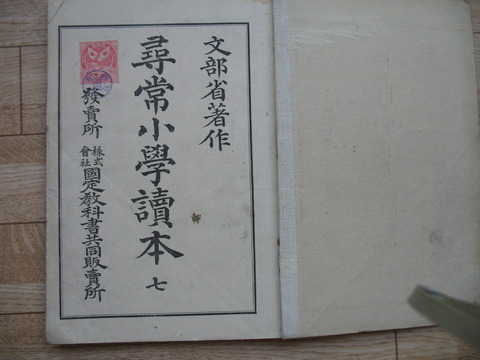 文部省著作
尋常小學讀本 七
發賣所 株式會社 國定教科書共同販賣所